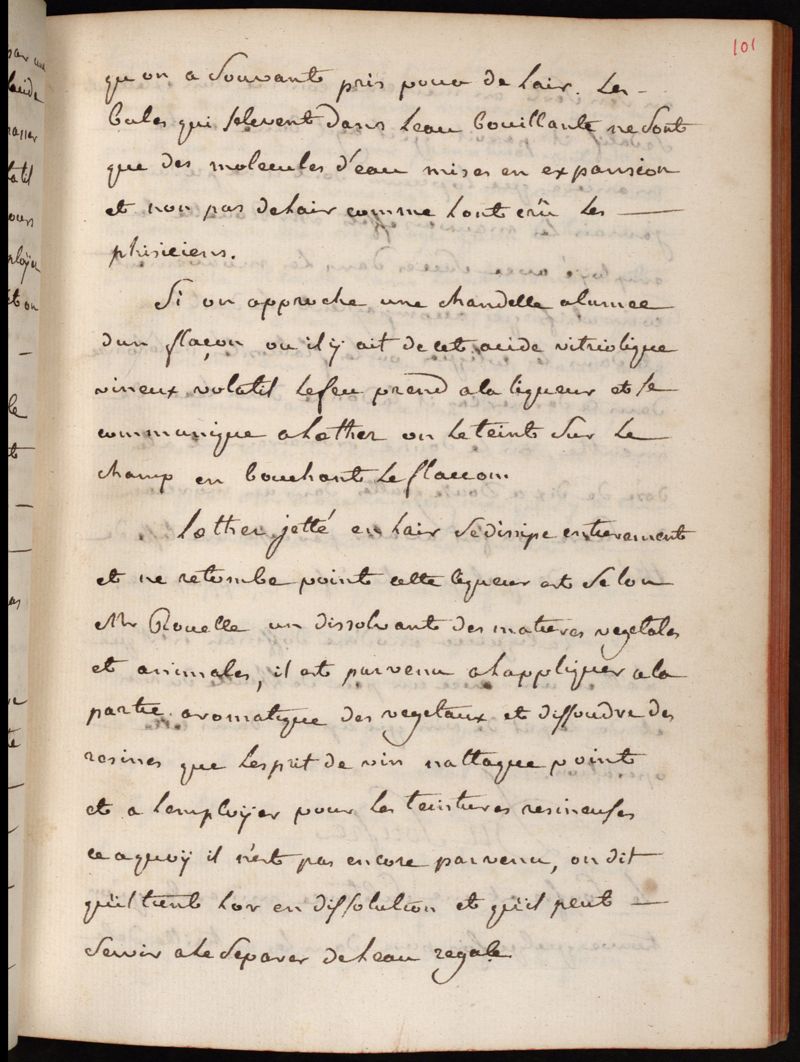 101
qu on a Souvants pris pour de lair. Les -
bules qui selevent dans leau bouillante ne Sont
que des molecules d'eau mises en expansion
et non pas de lair comme l ont crû les —
phisiciens.
Si on approche une chandelle alumée
dun flaçon ou il ÿ ait de cet acide vitriolique
vineux volatil le feu prend a la liqueur et se
communique a l æther on le teint Sur le
champ en bouchant le flaccon.
l æther jetté en lair Se dissipe entierement
et ne retombe point cette liqueur est Selon
Mr Rouelle un dissolvant des matieres vegetales
et animales, il est parvenu a l appliquer a la
partie aromatique des vegetaux et dissoudre des
resines que lesprit de vin nattaque point
et a lemploÿer pour les teintures resineuses
ce a quoÿ il n'est pas encore parvenu, on dit
qu'il tient lor en dissolution et qu'il peut —
Servir a le Separer de leau regale